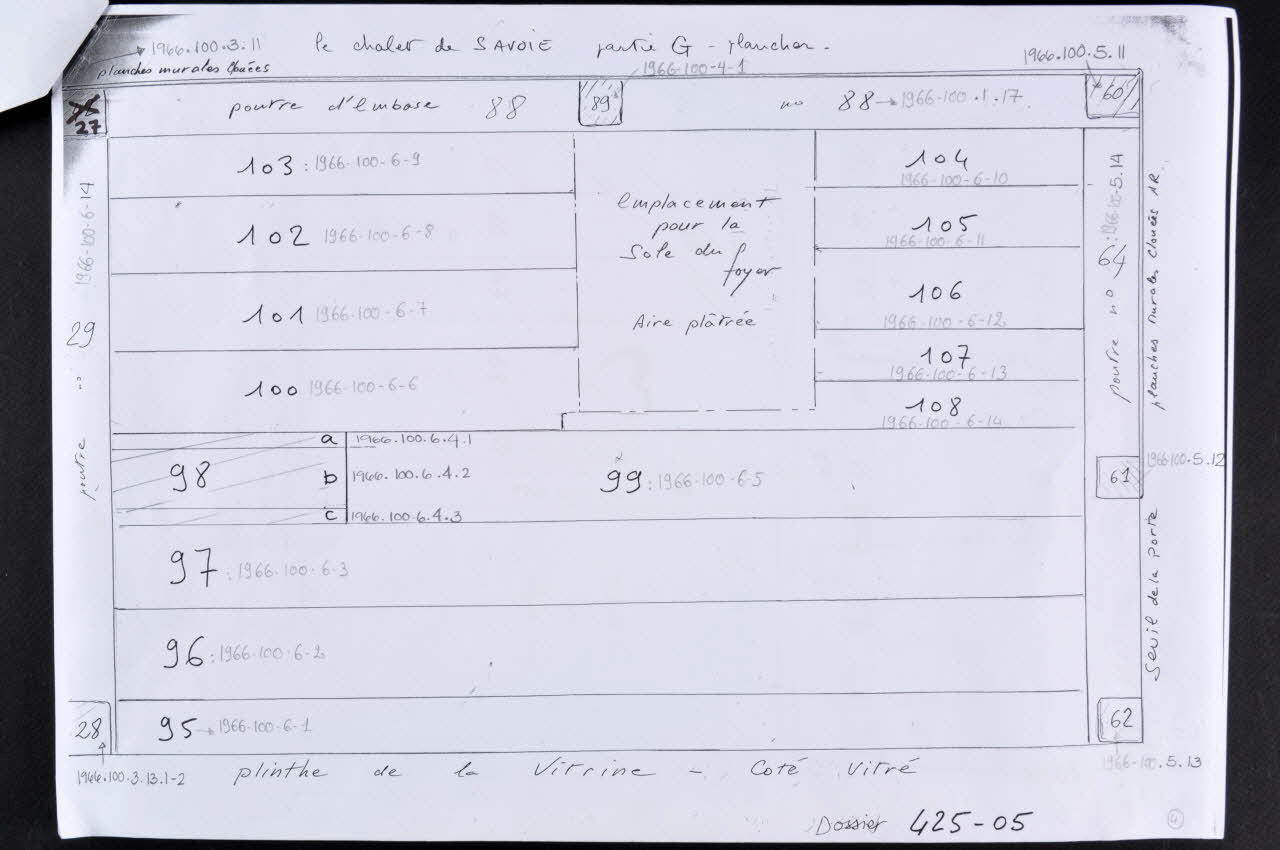 1966.100.3.11 le chalet de SAVOIE partie G - plancher -
1966.100.5.11
planches murales Clouées
1966-100-4-1
27
poutre d'Embase 88
89
no 88 → 1966-100.1.17
60
103 : 1966-100-6-9
104
1966-100-6-10
102 1966-100-6-8
105
1966-100-6-11
101 1966-100-6-7
106
1966-100-6-12
100 1966-100-6-6
107
1966-100-6-13
108
1966-100-6-14
Emplacement
pour la
Sole du
foyer
Aire plâtrée
poutre no 29 1966-100-6-14
poutre no 64 : 1966-100-5.14
planches murales Clouées AR.
a 1966.100.6.4.1
98 b 1966.100.6.4.2
c 1966.100.6.4.3
99 : 1966-100-6-5
61
1966100.5.12
97 : 1966-100-6-3
Seuil de la porte
96 : 1966-100-6-2
28
95 → 1966-100-6-1
62
1966.100.3.13.1-2
plinthe de la Vitrine - Coté Vitré
1966-100.5.13
Dossier 425-05
4